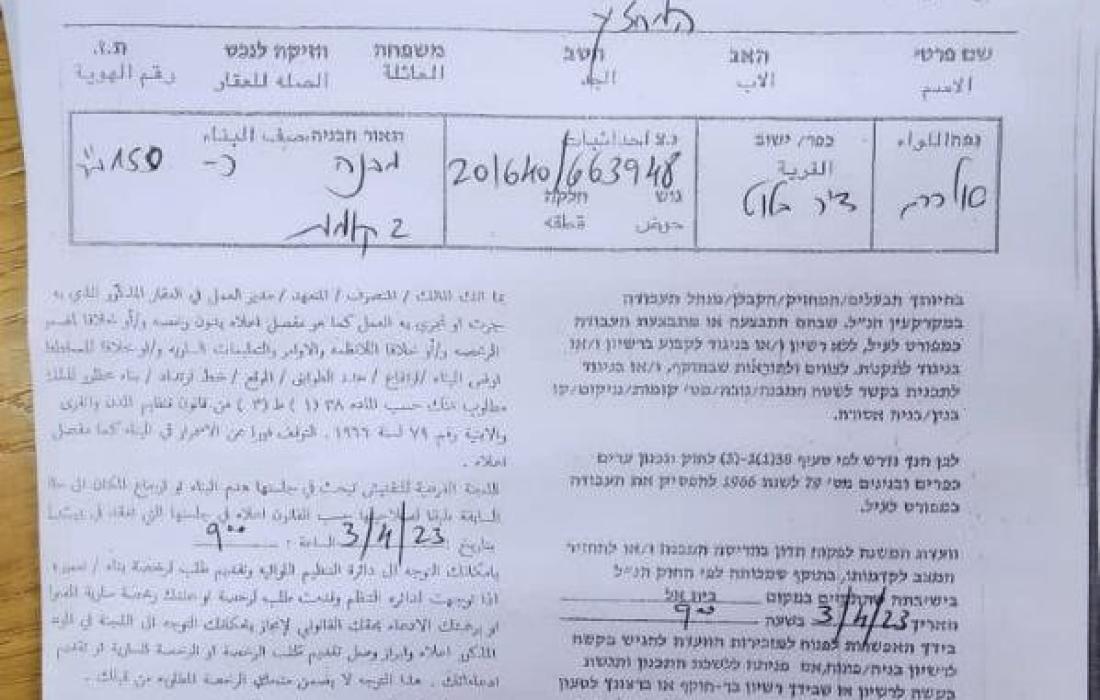 המחזיק
שם פרטי האב הסב משפחה חזיקה לנכס ת.ז.
الاسم الاب الجد العائلة الصلة للعقار رقم الهوية
נפה اللواء כפר/ישוב נ.צ احداثيات תאור הבניה وصف البناء
القرية 201640/663948 מבנה כ- 150
סולכרם דיר בלוט גוש חלקה
حوض قطعة 2 קומות
בהיותך הבעלים/המחזיק/הקבלן/מנהל העבודה
במקרקעין הנ"ל, שבהם התבצעה או מתבצעת העבודה
כמפורט לעיל, ללא רשיון ו/או בניגוד לקבוע ברשיון ו/או
בניגוד לתקנות, לצווים ולהוראות שבתוקף, ו/או בניגוד
לתכנית בקשר לשטח המבנה/גובה/מס' קומות/מיקום/קו
בנין/בנית אסורה.
לכן הנך נדרש לפי סעיף 38(1) לחוק תכנון ערים
כפרים ובנינים מס' 79 לשנת 1966 להפסיק את העבודה
כמפורט לעיל.
וועדת המשנה לפקוח תדון בהריסת המבנה ו/או להחזיר
המצב לקדמותו, בתוקף סמכותה לפי החוק הנ"ל
בישיבתה שתתקיים במקום בית אל
תאריך 3/4/23 בשעה 9:00
בידך האפשרות לפנות למזכירות הוועדה להגיש בקשה
לרישיון בניה/פתוח, אם פנית ללשכת התכנון והגשת
בקשה לרשיון או שבידך רשיון בר-תוקף או ברצונך לטעון
بما انك المالك / المتصرف / المتعهد / مدير العمل في العقار المذكور الذي به
جرت او تجري به العمل كما هو مفصل اعلاه بدون رخصه و/أو خلافا
الرخصه و/أو خلافا للانظمه والاوامر والتعليمات الساريه و/او خلافا
لوضع البناء /ارتفاع / عدد الطوابق / الموقع / خط ارتداد / بناء محظور لذلك
مطلوب منك حسب الماده ٣٨ (١) من قانون تنظيم المدن والقرى
والابنية رقم ٧٩ لسنة ١٩٦٦ . التوقف فورا عن الاستمرار في البناء كما مفصل
اعلاه .
اللجنة الفرعية للتفتيش تبحث في جلستها هدم البناء او ارجاع المكان الى حالة
السابقة طبقا لصلاحيتها حسب القانون اعلاه في جلستها التي تنعقد في
بتاريخ 3/4/23 الساعة : 9:00
بامكانك التوجه الى دائرة التنظيم اللوائيه وتقديم طلب لرخصة بناء /
اذا توجهت لدائرة التنظيم وقدمت طلب لرخصة او بحوزتك رخصة سارية
او برغبتك الادعاء بحقك القانوني لإنجاز بامكانك التوجه الى اللجنة في
المذكور اعلاه وابراز وصل تقديم طلب الرخصة او الرخصة السارية او تقديم
ادعاءاتك . هذا التوجه لا يضمن الرخصة المطلوبه من قبلك .